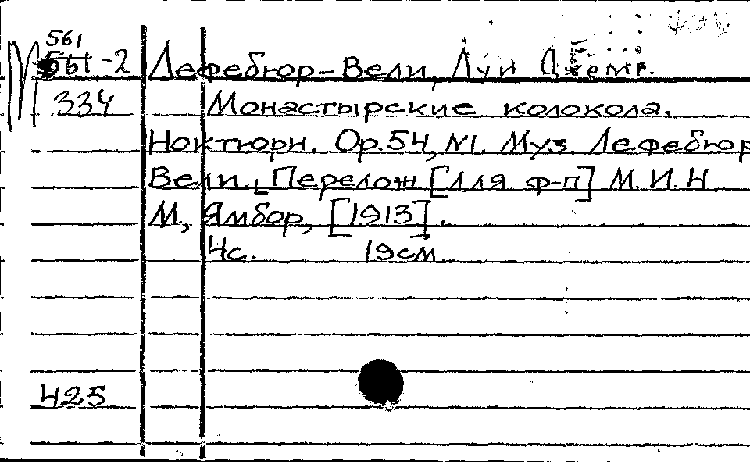 561
561-2 Лефебюр-Вели, Луи Джемс
334 Монастырские колокола.
Ноктюрн. Op.54, N1. Муз. Лефебюр
Вели. Перелож [для ф-п] М.И.Н
М, Ямбор, [1913].
4с. 19см
425